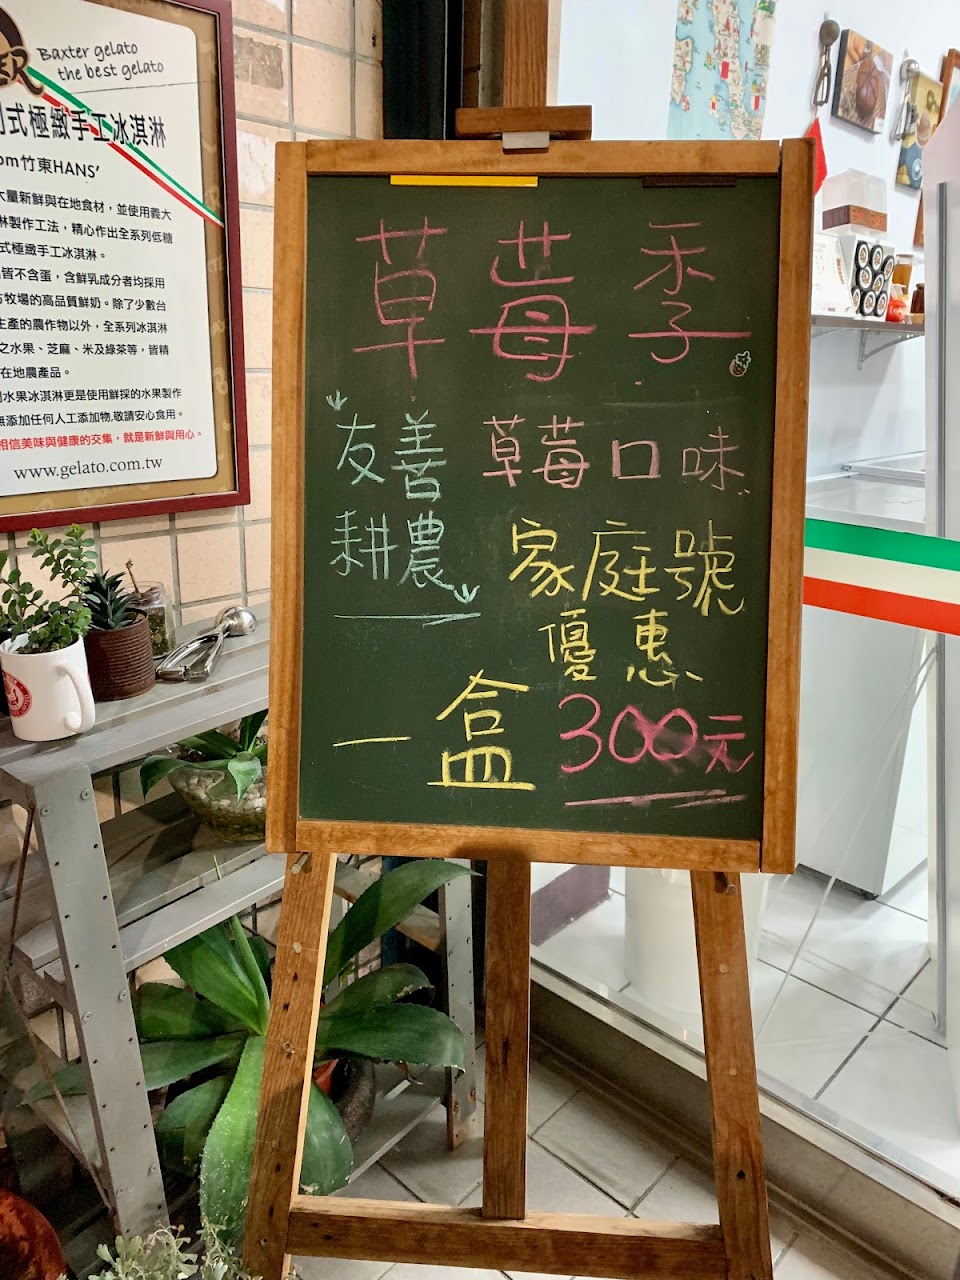 Baxter gelato
the best gelato
式極緻手工冰淇淋
om竹東HANS'
大量新鮮與在地食材，並使用義大
淋製作工法，精心作出全系列低糖
式極緻手工冰淇淋。
皆不含蛋，含鮮乳成分者均採用
牧場的高品質鮮奶。除了少數台
生產的農作物以外，全系列冰淇淋
之水果、芝麻、米及綠茶等，皆精
在地農產品。
水果冰淇淋更是使用鮮採的水果製作
無添加任何人工添加物,敬請安心食用。
相信美味與健康的交集，就是新鮮與用心。
www.gelato.com.tw
草莓季
友善
耕農
草莓口味
家庭號
優惠
一盒300元